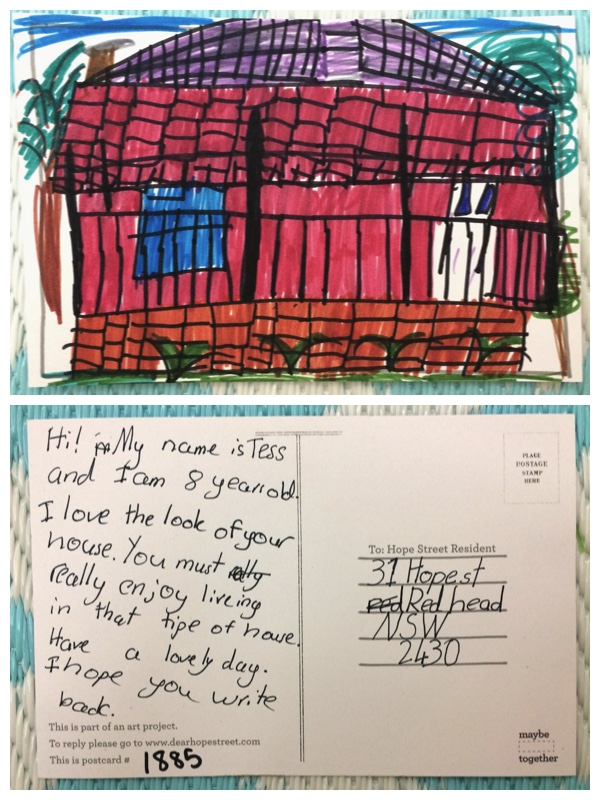 Hi! My name is Tess
and I am 8 years old.
I love the look of your
house. You must
really enjoy liveing
in that tipe of house.
Have a lovely day.
I hope you write
back.
This is part of an art project.
To reply please go to www.dearhopestreet.com
This is postcard # 1885
PLACE
POSTAGE
STAMP
HERE
To: Hope Street Resident
31 Hope.st
Red head
NSW
2430
maybe
together